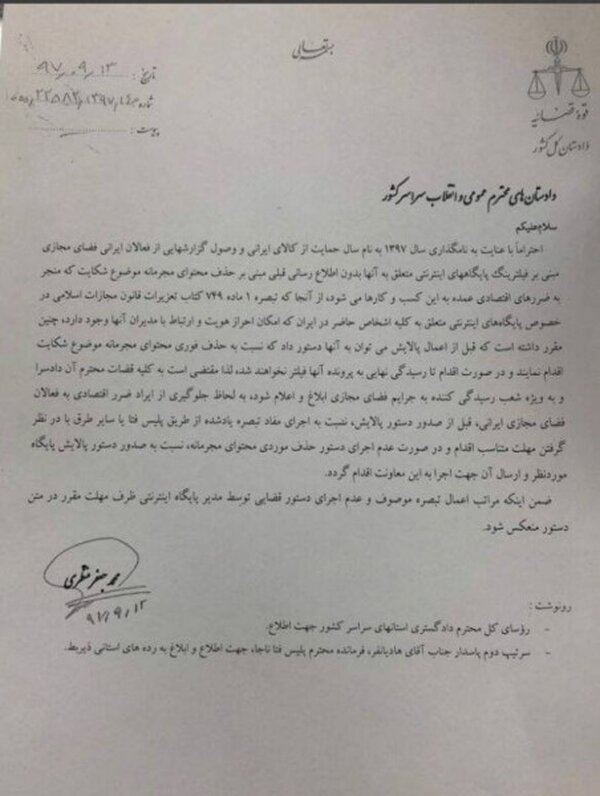 بسمه تعالی
قوه قضائیه
دادستان کل کشور
تاریخ : ۹۷/۰۹/۱۳
شماره
پیوست :
دادستان های محترم عمومی و انقلاب سراسر کشور
سلام علیکم
احتراماً با عنایت به نامگذاری سال ۱۳۹۷ به نام سال حمایت از کالای ایرانی و وصول گزارشهایی از فعالان ایرانی فضای مجازی
مبنی بر فیلترینگ پایگاههای اینترنتی متعلق به آنها بدون اطلاع رسانی قبلی مبنی بر حذف محتوای مجرمانه موضوع شکایت که منجر
به ضررهای اقتصادی عمده به این کسب و کارها می شود، از آنجا که تبصره ۱ ماده ۷۴۹ کتاب تعزیرات قانون مجازات اسلامی در
خصوص پایگاه‌های اینترنتی متعلق به کلیه اشخاص حاضر در ایران که امکان احراز هویت و ارتباط با مدیران آنها وجود دارد، چنین
مقرر داشته است که قبل از اعمال پالایش می توان به آنها دستور داد که نسبت به حذف فوری محتوای مجرمانه موضوع شکایت
اقدام نمایند و در صورت اقدام تا رسیدگی نهایی به پرونده آنها فیلتر نخواهند شد، لذا مقتضی است به کلیه قضات محترم آن دادسرا
و به ویژه شعب رسیدگی کننده به جرایم فضای مجازی ابلاغ و اعلام شود، به لحاظ جلوگیری از ایراد ضرر اقتصادی به فعالان
فضای مجازی ایرانی، قبل از صدور دستور پالایش، نسبت به اجرای مفاد تبصره یادشده از طریق پلیس فتا یا سایر طرق با در نظر
گرفتن مهلت متناسب اقدام و در صورت عدم اجرای دستور حذف موردی محتوای مجرمانه، نسبت به صدور دستور پالایش پایگاه
موردنظر و ارسال آن جهت اجرا به این معاونت اقدام گردد.
ضمن اینکه مراتب اعمال تبصره موصوف و عدم اجرای دستور قضایی توسط مدیر پایگاه اینترنتی ظرف مهلت مقرر در متن
دستور منعکس شود.
محمد جعفر منتظری
۹۷/۹/۱۲
رونوشت :
- رؤسای کل محترم دادگستری استانهای سراسر کشور جهت اطلاع.
- سرتیپ دوم پاسدار جناب آقای هادیانفر، فرمانده محترم پلیس فتا ناجا، جهت اطلاع و ابلاغ به رده های استانی ذیربط.